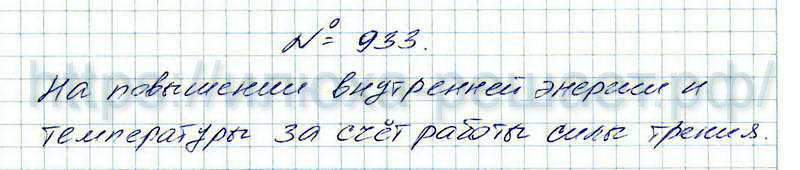 № 933.
На повышении внутренней энергии и
температуры за счёт работы силы трения.